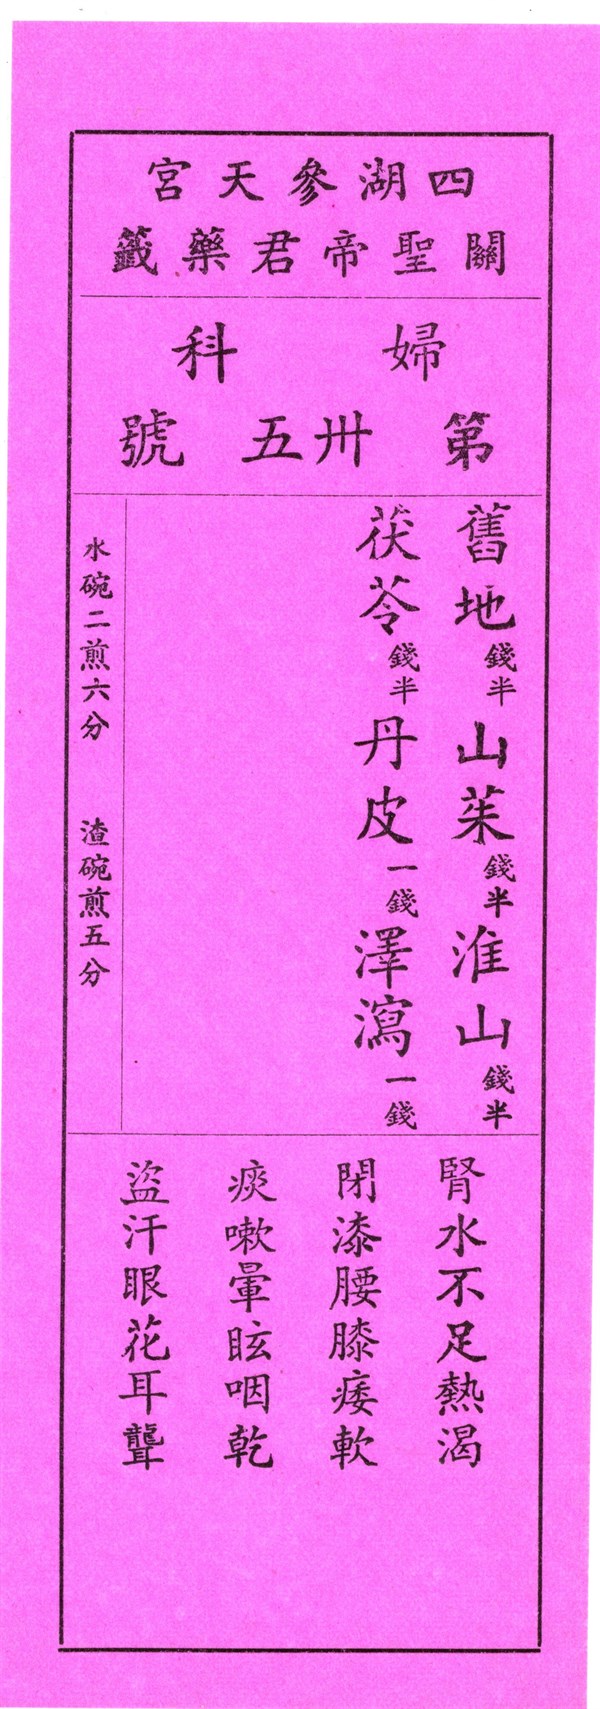 四湖參天宮
關聖帝君藥籤
婦科
第卅五號
舊地錢半山茱錢半淮山錢半
茯苓錢半丹皮一錢澤瀉一錢
水碗二煎六分 渣碗煎五分
腎水不足熱渴
閉漆腰膝痿軟
痰嗽暈眩咽乾
盜汗眼花耳聾